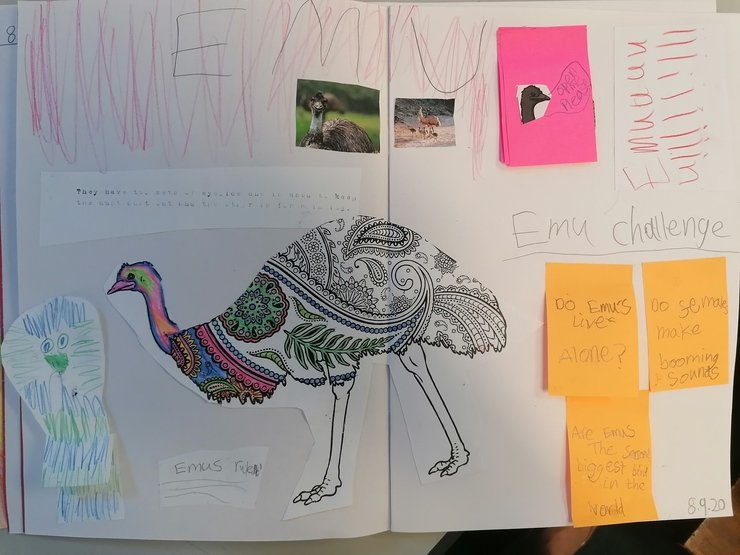 8
EMU
open
here
Emuuuu
uuuuuuu
They have two sets of eyelids one is used to keep
the dust out and the other is for blinking.
Emu challenge
Do Emus
Live
Alone?
Do females
make
booming
sounds
Are Emus
The second
biggest bird
in the
World
Emus rule
8.9.20